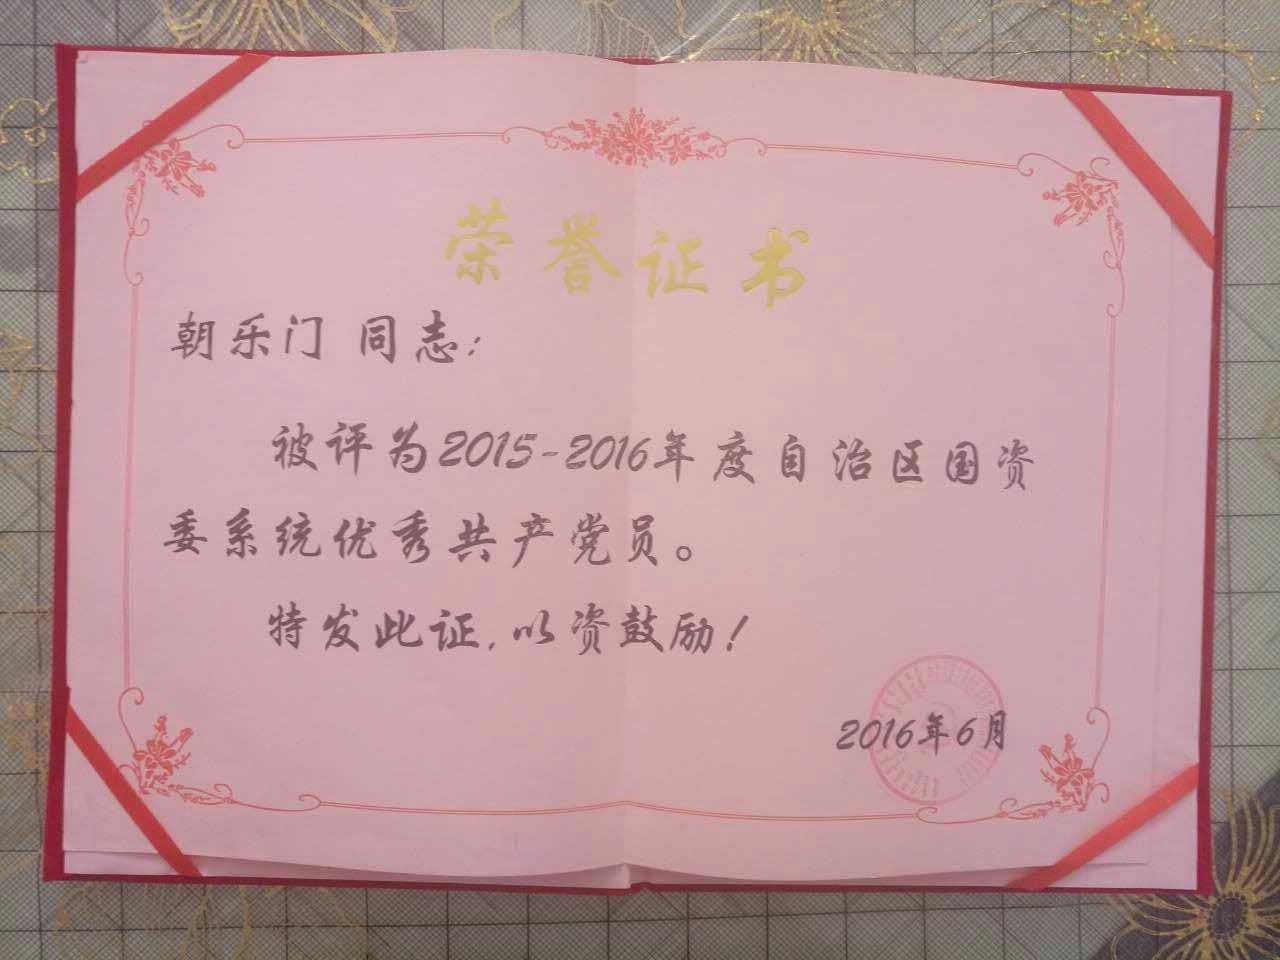 荣誉证书
朝乐门 同志:
被评为2015-2016年度自治区国资
委系统优秀共产党员。
特发此证,以资鼓励!
2016年6月